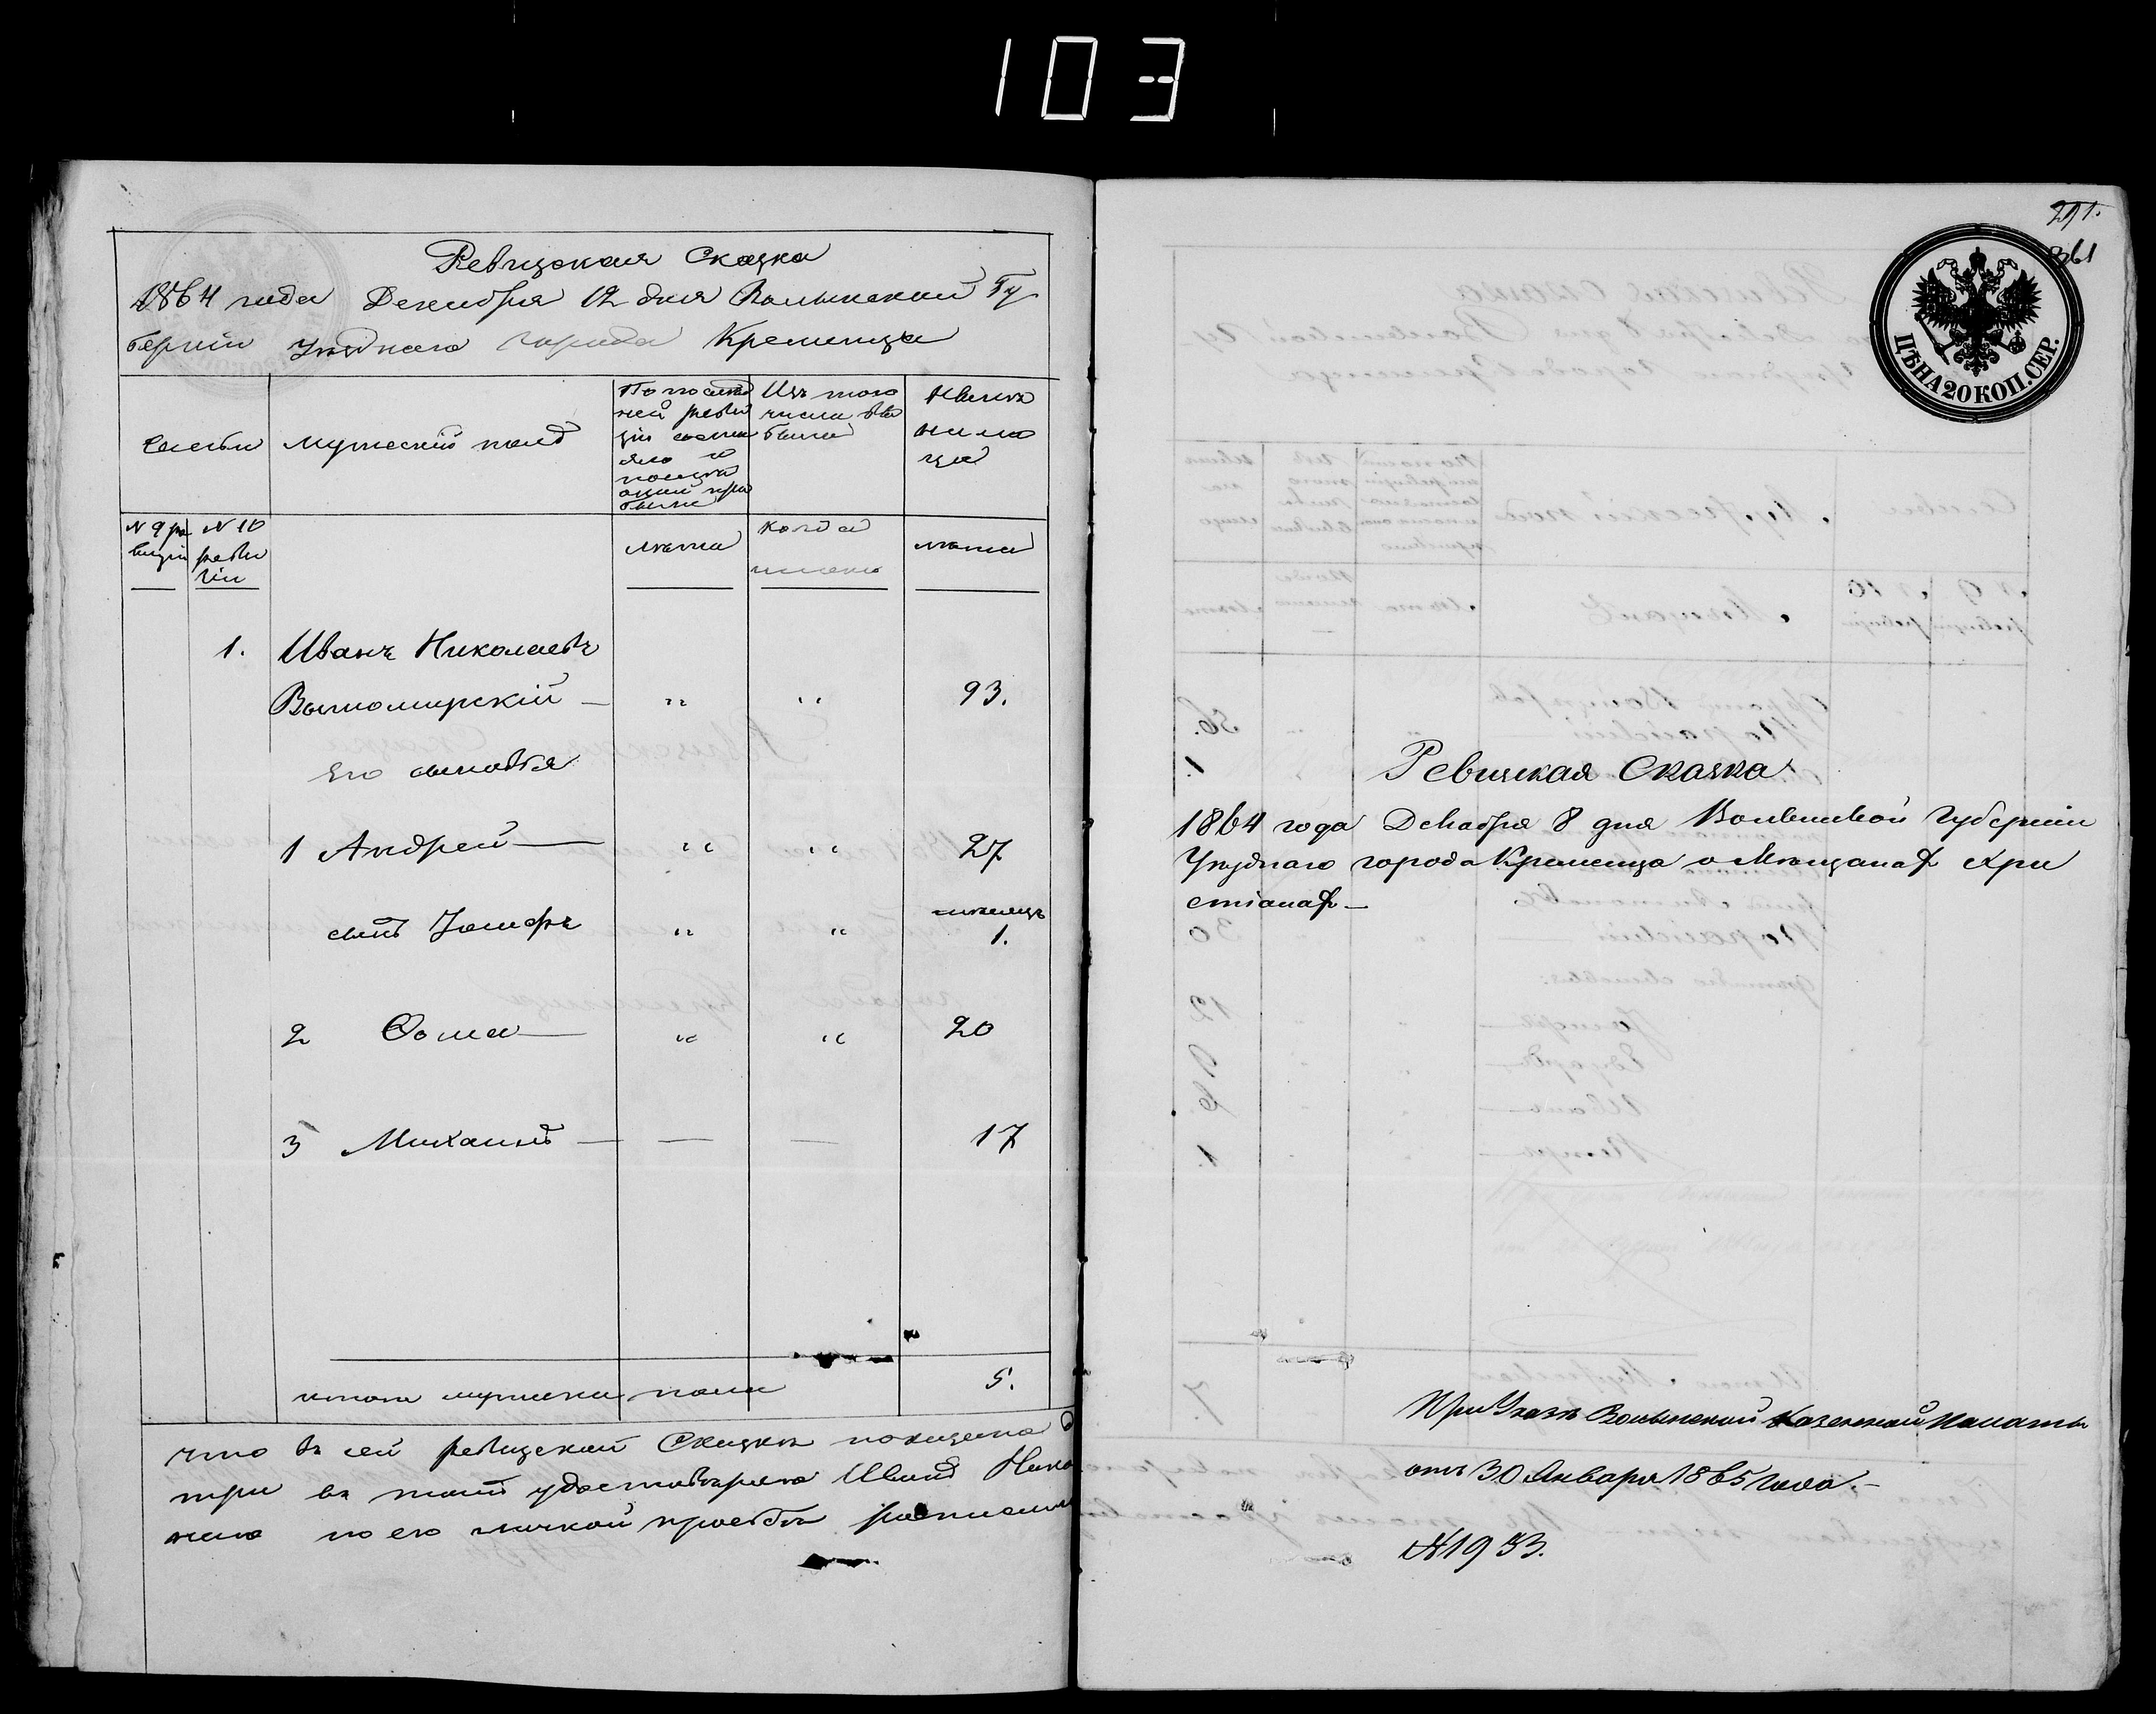 103
Ревизская Сказка
1864 года Декабря 12 дня Волынской Гу
берніи Уѣзднаго города Кременца
Семьи
мужескій полъ
По послѣд
ней реви
зіи состоя
яло и
послѣ
оной при
было
Изъ того
числа вы
было
Нынѣ
на ли
цо
№ 9 ре
визіи
№ 10
реви
зіи
лѣта
когда
именно
лѣта
1. Иванъ Николаевъ
93.
его сыновья
1 Андрей — " " 27
сынъ Іосифъ " " 1.
2 Ѳома — " " 20
3 Михаилъ — — — 17
итого мужеска пола 5.
что въ сей ревизской Сказкѣ показано
три въ томъ удостовѣряю Иванъ Нико
по его личной просьбѣ
291.
361
ЦѢНА 20 КОП. СЕР.
Ревизская Сказка
1864 года Декабря 8 дня Волынской Губерніи
Уѣзднаго города Кременца о Мѣщанах Хри
стіанах —
При Указѣ Волынской Казенной Палаты
отъ 30 Января 1865 года. —
№ 1933.